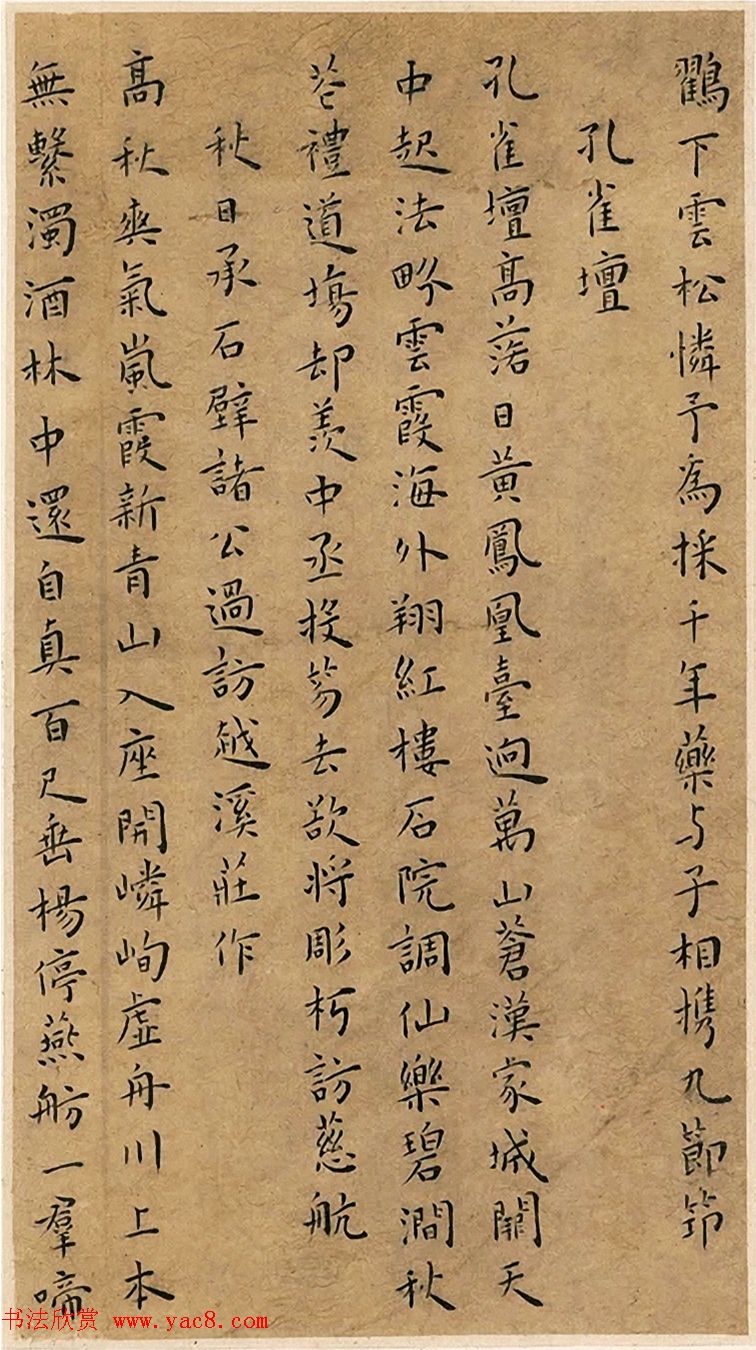 鸛下雲松憐予為採千年藥与子相攜九節筇
孔雀壇
孔雀壇高落日黃鳳凰臺迥萬山蒼漢家城闕天
中起法界雲霞海外翔紅樓石院調仙樂碧澗秋
花禮道場却羨中丞投笏去欲將彫朽訪慈航
秋日承石壁諸公過訪越溪莊作
高秋爽氣嵐霞新青山入座開嶙峋虛舟川上本
無繫濁酒林中還自真百尺垂楊停燕舫一羣啼
书法欣赏 www.yac8.com